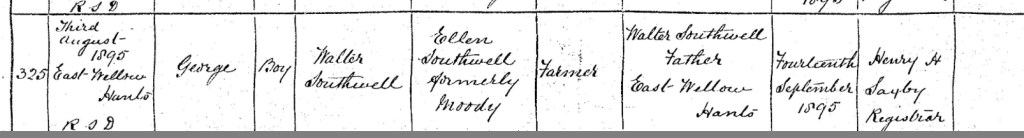 R S D
325
Third
August
1895
East Wellow
Hants
R S D
George
Boy
Walter
Southwell
Ellen
Southwell
formerly
Moody
Farmer
Walter Southwell
Father
East Wellow
Hants
Fourteenth
September
1895
Henry H
Saxby
Registrar